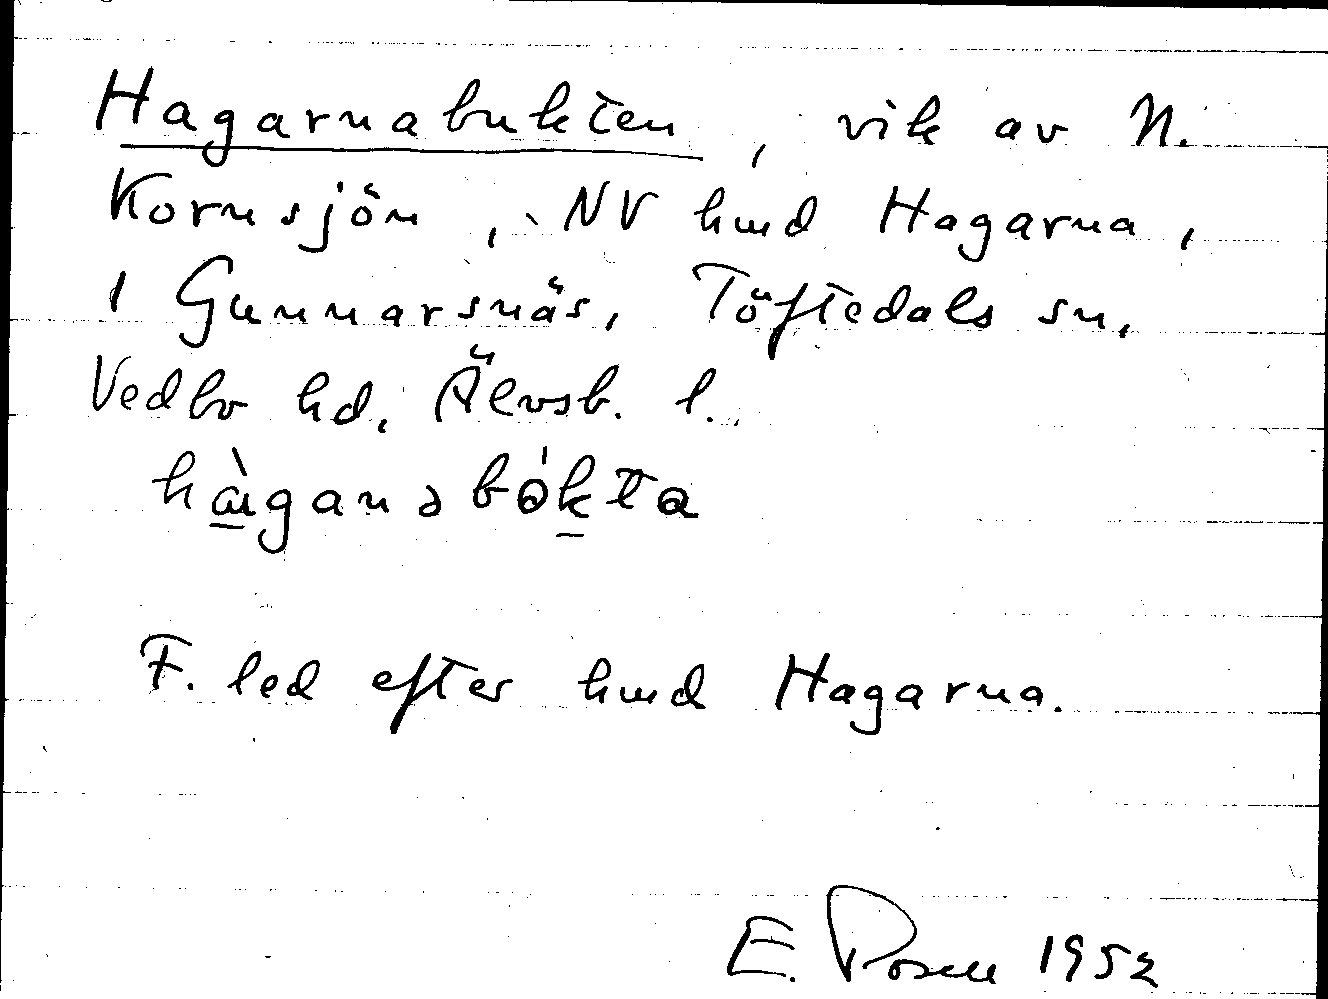 Hagarnabukten, vik av N.
Kornsjön, NV hmd Hagarna,
1 Gunnarsnäs, Töftedals sn,
Vedbo hd, Älvsb. l.
hàganəbókta
F. led efter hmd Hagarna.
E. Rosell 1952